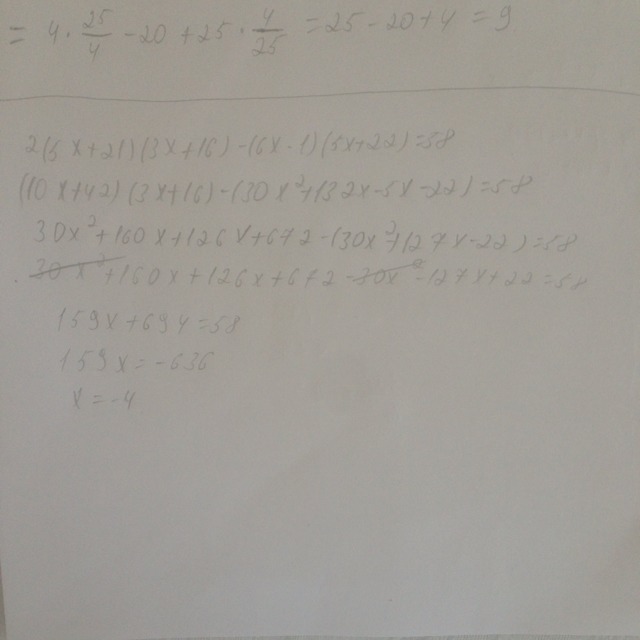 = 4 · 25/4 - 20 + 25 · 4/25 = 25 - 20 + 4 = 9
2(5x+21)(3x+16)-(6x-1)(5x+22)=58
(10x+42)(3x+16)-(30x²+132x-5x-22)=58
30x²+160x+126x+672-(30x²+127x-22)=58
30x²+160x+126x+672-30x²-127x+22=58
159x+694=58
159x=-636
x=-4